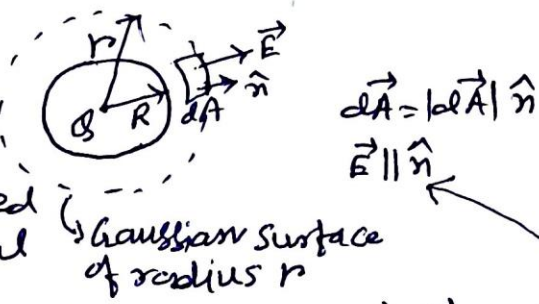 r
E⃗
n̂
Q R
dA
dA⃗ = |dA⃗| n̂
E⃗ || n̂
Gaussian surface
of radius r